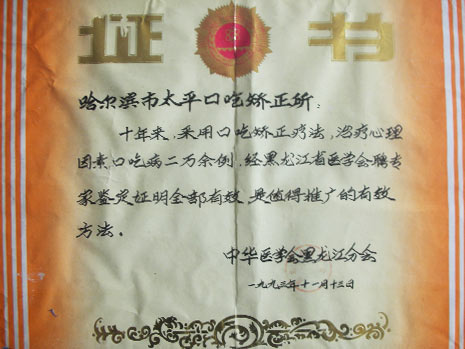 证书
哈尔滨市太平口吃矫正所：
十年来，采用口吃矫正疗法，治疗心理
因素口吃病二万余例，经黑龙江省医学会聘专
家鉴定证明全部有效，是值得推广的有效
方法。
中华医学会黑龙江分会
一九九三年十一月十三日